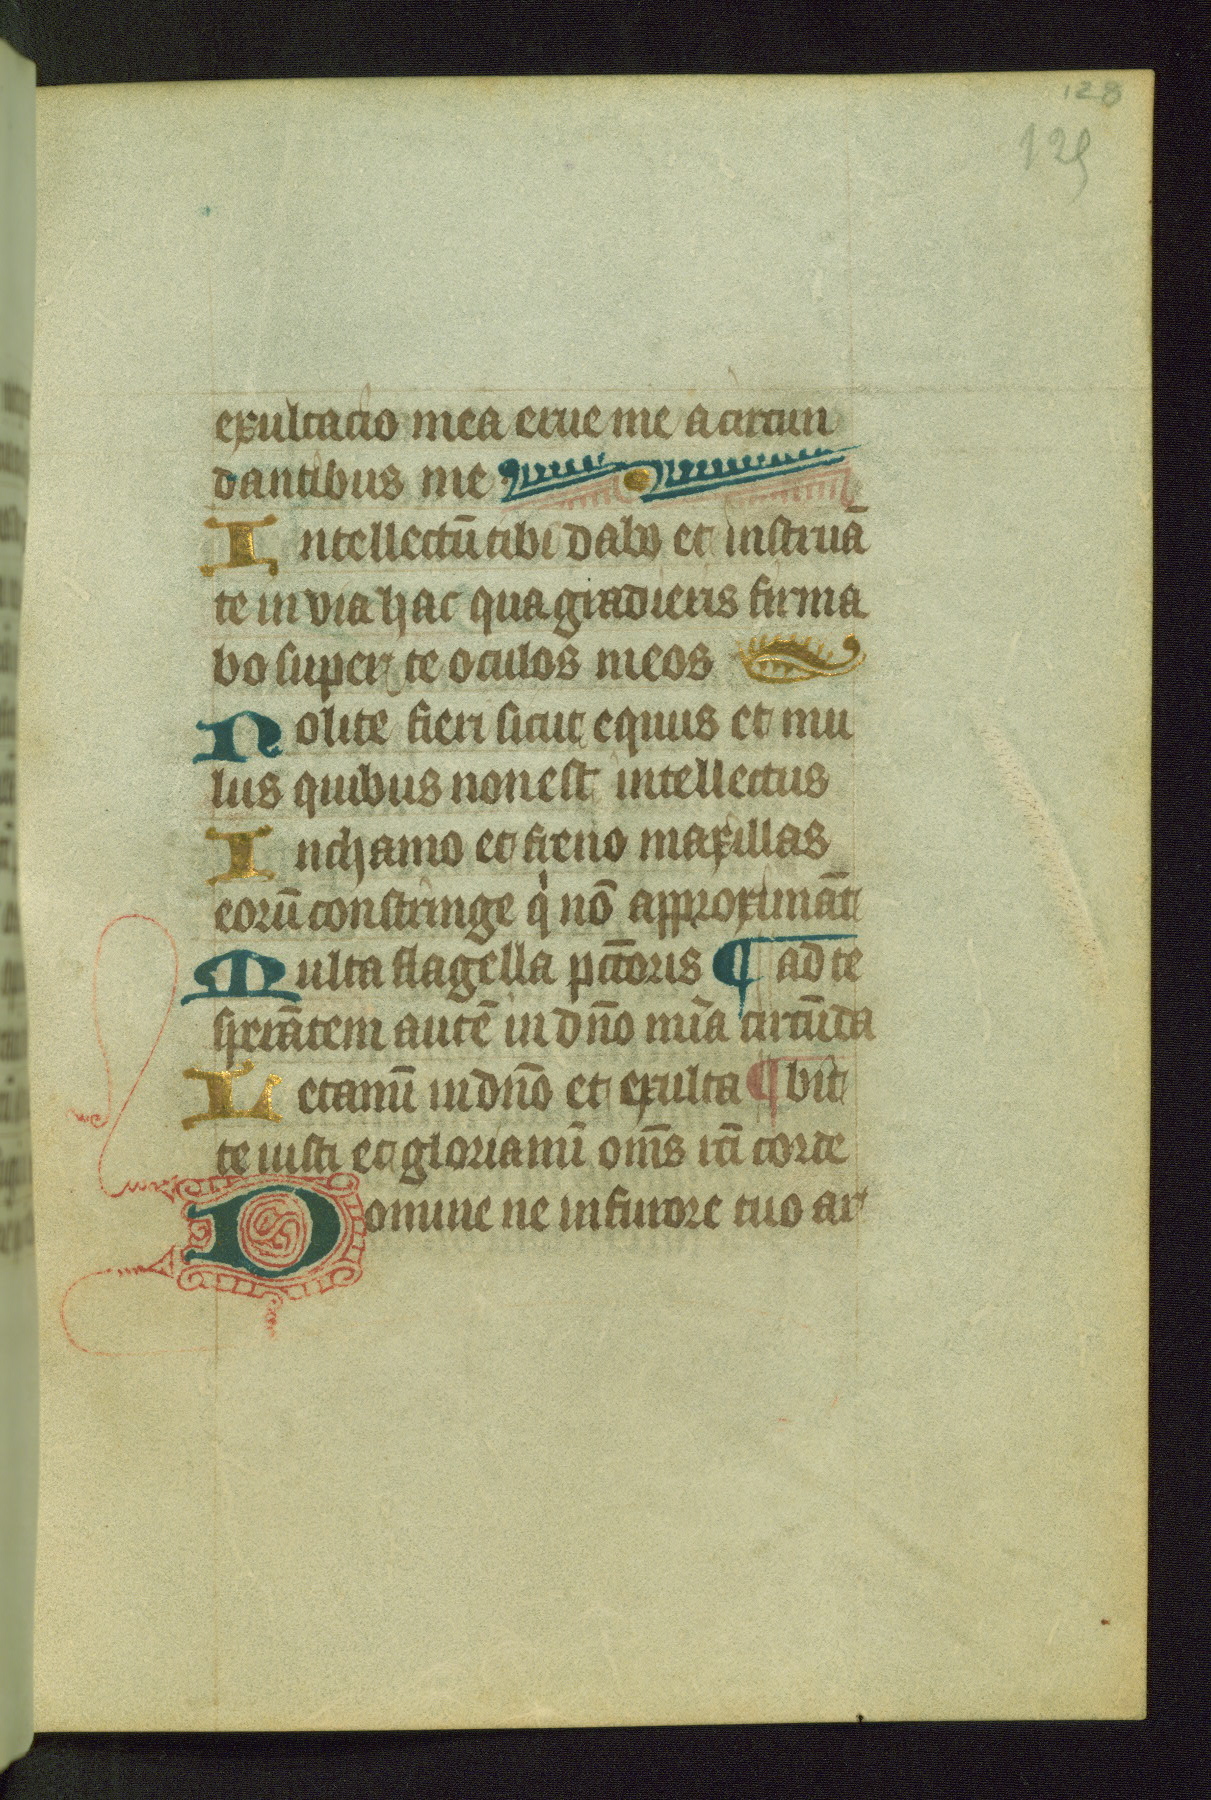 128
129
exultacio mea erue me a circun
dantibus me
Intellectū tibi dabo et instruā
te in via hac qua gradieris firma
bo super te oculos meos
Nolite fieri sicut equus et mu
lus quibus non est intellectus
In chamo et freno maxillas
eorū constringe q' nō approximāt
Multa flagella pctōris ¶ ad te
sperātem autē in dn̄o mīa circūda
Letamī in dn̄o et exulta ¶ bit
te iusti et gloriamī om̄s rcī corde
Domine ne in furore tuo ar